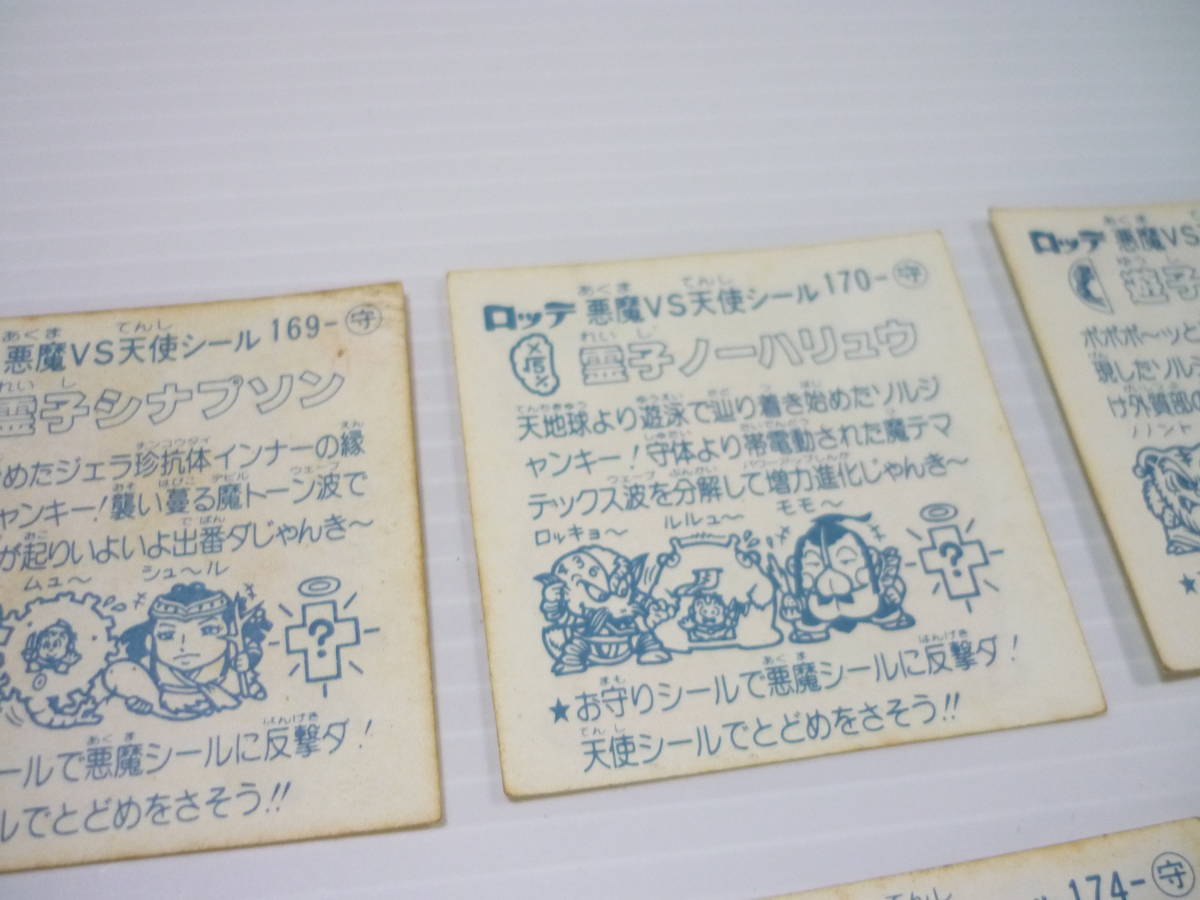 悪魔VS天使シール 169-守
霊子シナプソン
めたジェラ珍抗体インナーの縁
ャンキー!襲い蔓る魔トーン波で
が起りいよいよ出番ダじゃんき〜
ムュ〜 シュ〜ル
?
ールで悪魔シールに反撃ダ!
ルでとどめをさそう!!
ロッテ 悪魔VS天使シール 170-守
霊子ノーハリュウ
天地球より遊泳で辿り着き始めたソルジ
ャンキー!守体より帯電動された魔テマ
テックス波を分解して増力進化じゃんき〜
ロルキョ〜 ルルュ〜 モモ〜
?
★お守りシールで悪魔シールに反撃ダ!
天使シールでとどめをさそう!!
ロッテ 悪魔VS
ポポポ〜ッと
現したソル
け外質部の
ハント
★
174-守